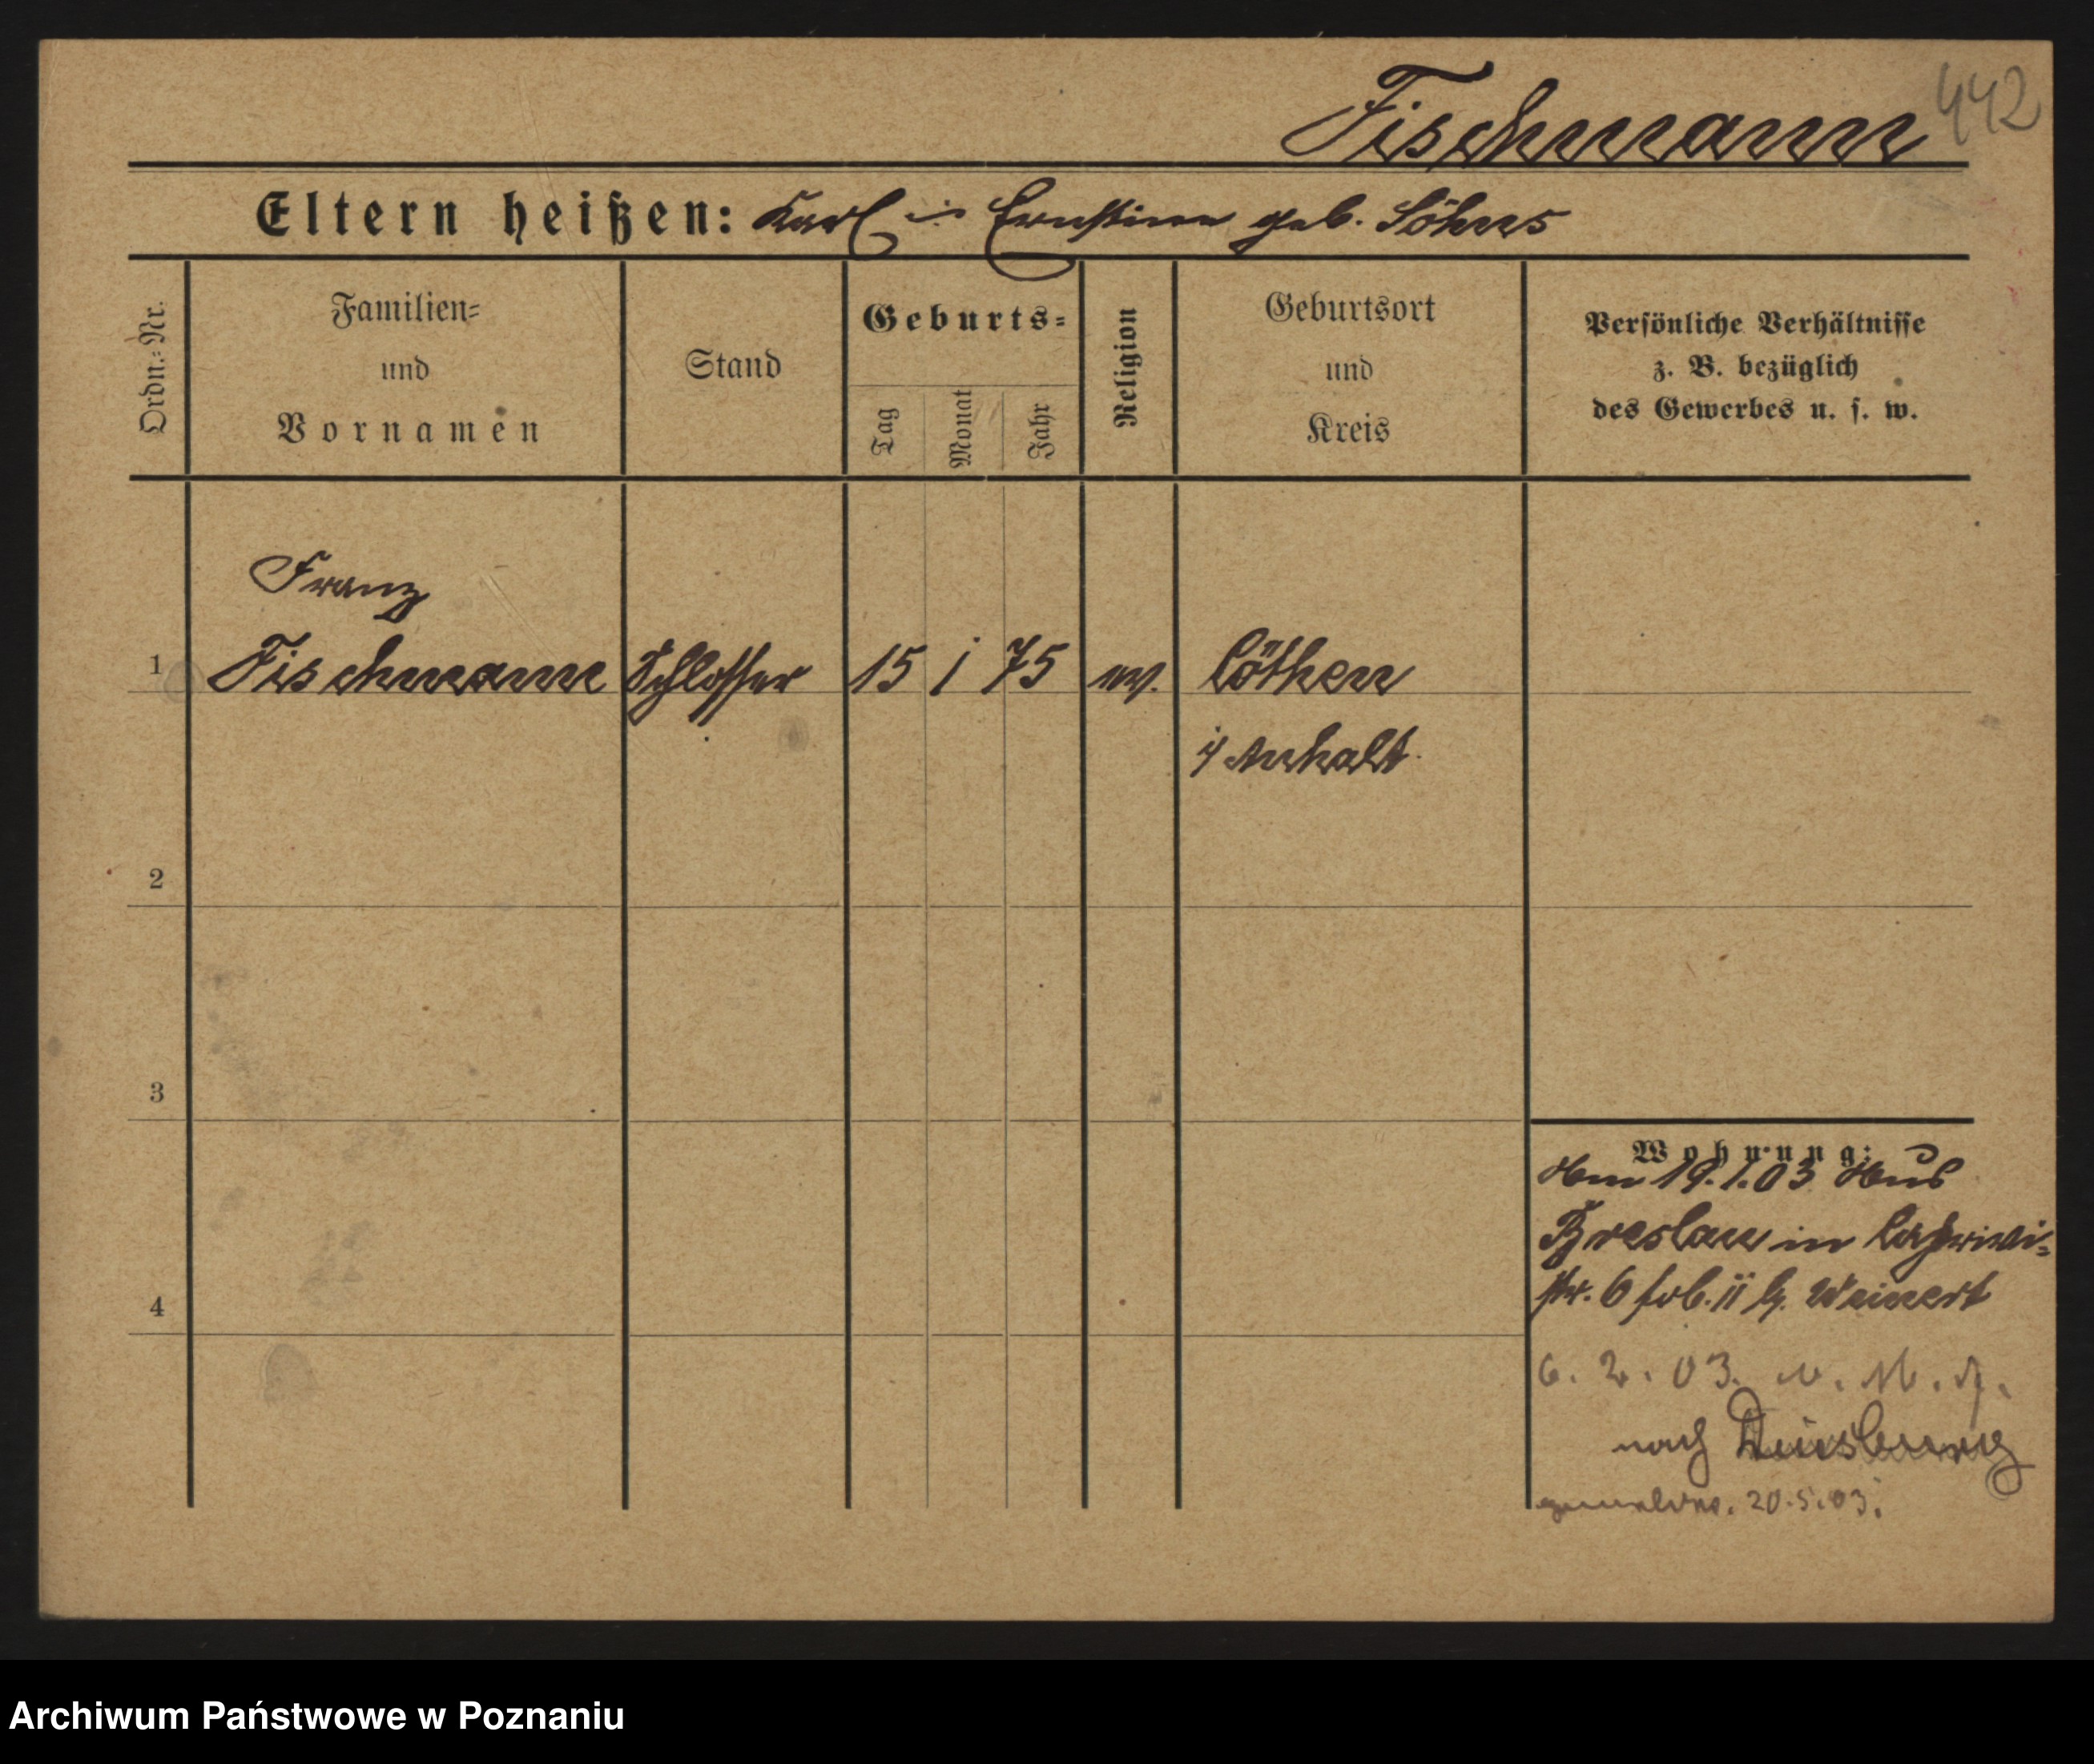 442
Fischmann
Eltern heißen: Karl u Ernstine geb. Söhns
Ordn.-Nr.
Familien-
und
Vornamen
Stand
Geburts-
Tag
Monat
Jahr
Religion
Geburtsort
und
Kreis
Persönliche Verhältnisse
z. B. bezüglich
des Gewerbes u. s. w.
Franz
1 Fischmann Schlosser 15 1 75 ev. Cöthen
i/ Anhalt
2
3
4
Wohnung:
Am 19.1.03 Aus
Breslau in
str. 6 II b. Weinert
6. 2. 03.
nach Duisburg
20.5.03.
Archiwum Państwowe w Poznaniu